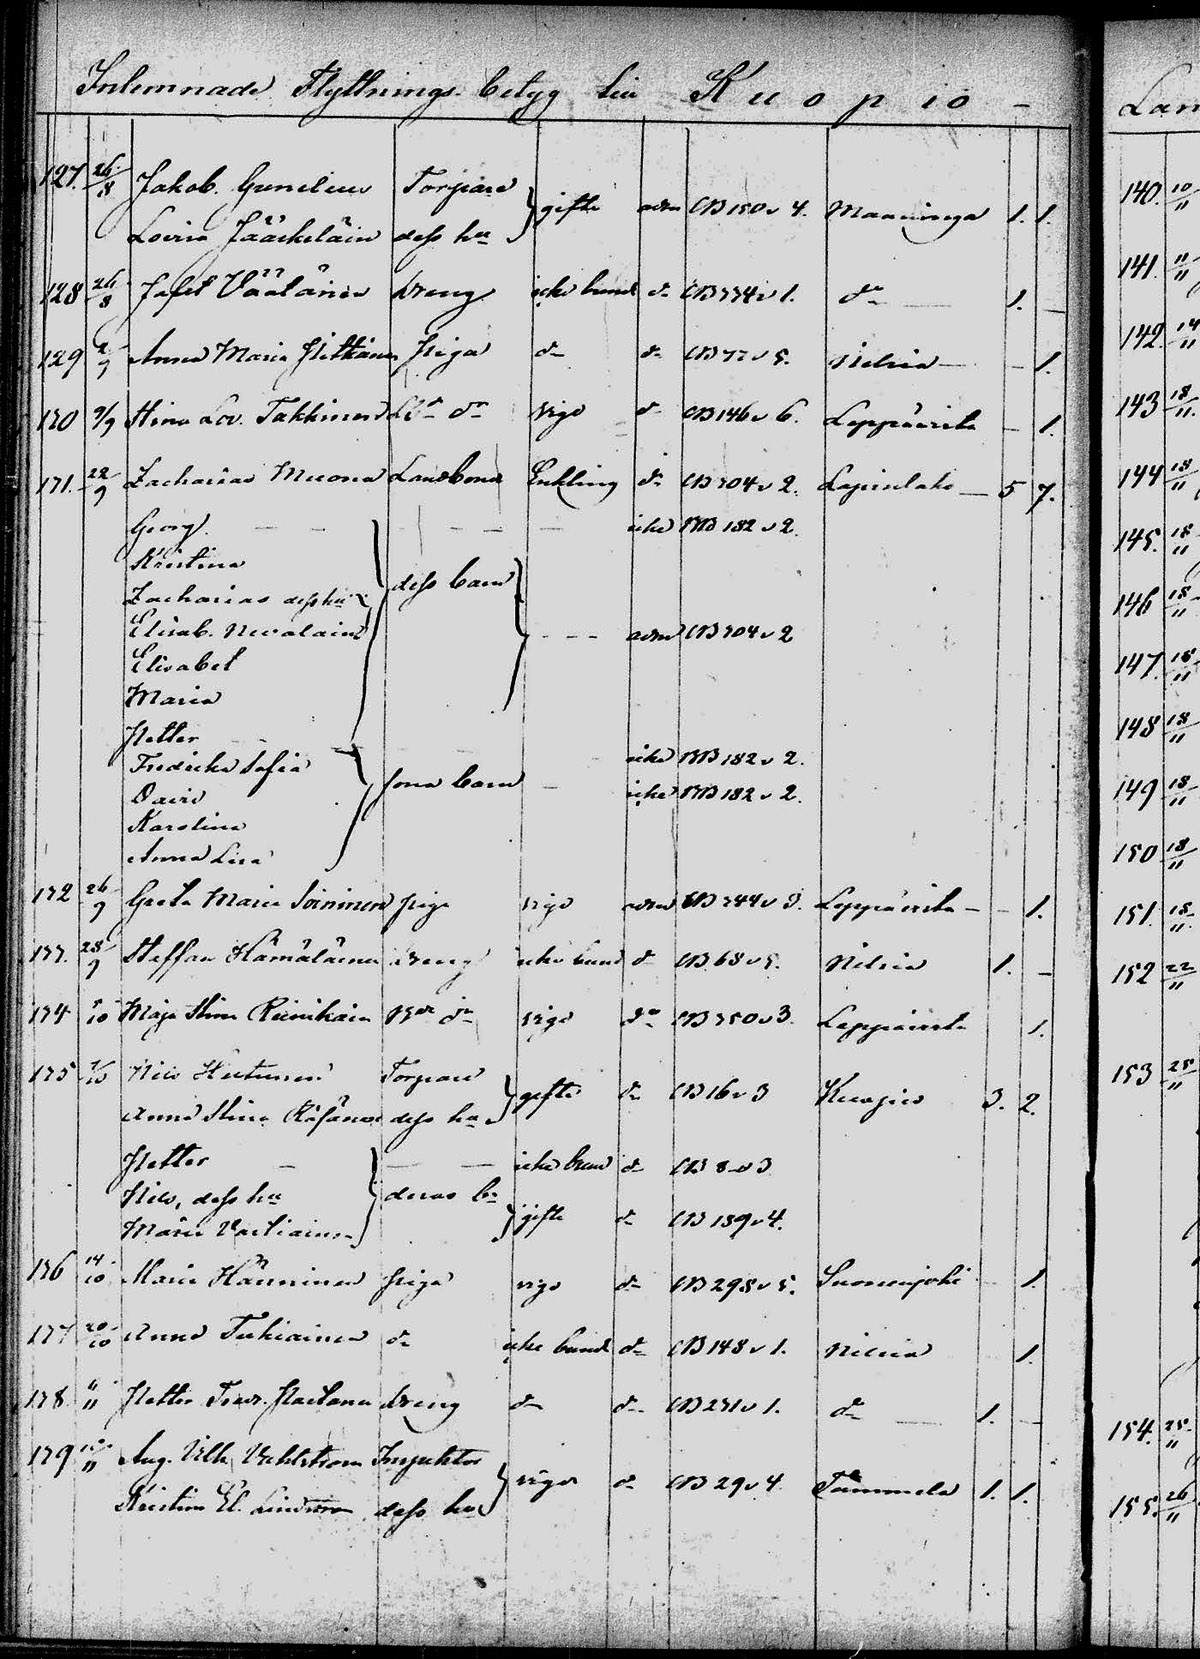 Inlemnade Flyttnings betyg till Kuopio
127. 26/8 Jakob Gumelius Torpare } gifte adm CB 150 v 4. Maaninga 1. 1.
Lovisa Jääskeläin dess hu
128 26/8 Jafet Väätänen dreng icke bund do CB 334 v 1. do 1. –
129 2/9 Anna Maria Pitkänen piga do do CB 77 v 5. Nilsiä – 1.
130 9/9 Stina Lov. Takkinen do vigd do CB 146 v 6. Leppävirta – 1.
131. 22/9 Zacharias Muona Landbond Enkling do CB 304 v 2. Lapinlaks 5 7.
Georg icke BB 182 v 2.
Kristina
Zacharias dess hu } dess barn
Elisab. Nevalain adm CB 304 v 2
Elisabet
Maria
Petter
Fredrika Sofia icke BB 182 v 2.
David } sona barn – icke BB 182 v 2.
Karolina
Anna Lisa
132 26/9 Greta Maria Soininen piga vigd adm CB 344 v 3. Leppävirta – – 1.
133. 28/9 Staffan Hämäläinen dreng icke bund do CB 68 v 5. Nilsiä 1. –
134 5/10 Maja Stina Reinikain do vigd do CB 350 v 3. Leppävirta 1.
135 7/10 Nils Huttunen Torpare } gifte do CB 16 v 3 Kuopio 3. 2.
Anna Stina Räsänen dess hu
Petter – icke bund do CB 8 v 3
Nils, dess hu } deras bn
Maria Vartiainen } gifte do CB 139 v 4.
136 14/10 Maria Hänninen piga vigd do CB 298 v 5. Suonenjoki 1.
137 20/10 Anna Tukiainen do icke bund do CB 148 v 1. Nilsiä 1.
138 6/11 Petter Fredr. dreng do do CB 231 v 1. do 1. –
139 Aug. Vilh. Vahlstrom Inspektor } vigde do CB 29 v 4. Tammela 1. 1.
Kristina El. Lindrom dess hu
Lan
140. 10/11
141. 11/11
142. 14/11
143 18/11.
144 18/11
145. 18/11
146 18/11
147. 18/11
148 18/11
149 18/11
150 18/11
151. 18/11.
152 22/11
153 25/11
154. 25/11
155. 26/11